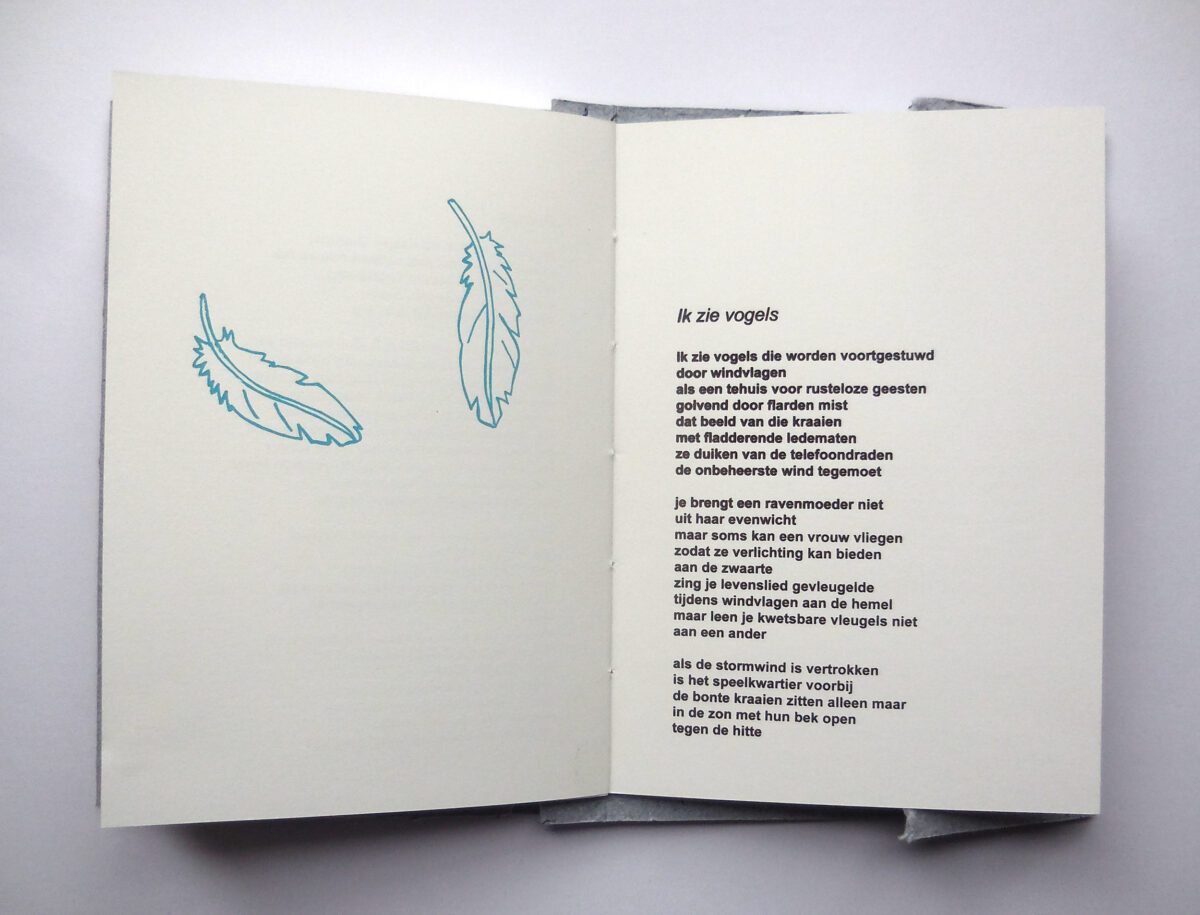 Ik zie vogels
Ik zie vogels die worden voortgestuwd
door windvlagen
als een tehuis voor rusteloze geesten
golvend door flarden mist
dat beeld van die kraaien
met fladderende ledematen
ze duiken van de telefoondraden
de onbeheerste wind tegemoet
je brengt een ravenmoeder niet
uit haar evenwicht
maar soms kan een vrouw vliegen
zodat ze verlichting kan bieden
aan de zwaarte
zing je levenslied gevleugelde
tijdens windvlagen aan de hemel
maar leen je kwetsbare vleugels niet
aan een ander
als de stormwind is vertrokken
is het speelkwartier voorbij
de bonte kraaien zitten alleen maar
in de zon met hun bek open
tegen de hitte